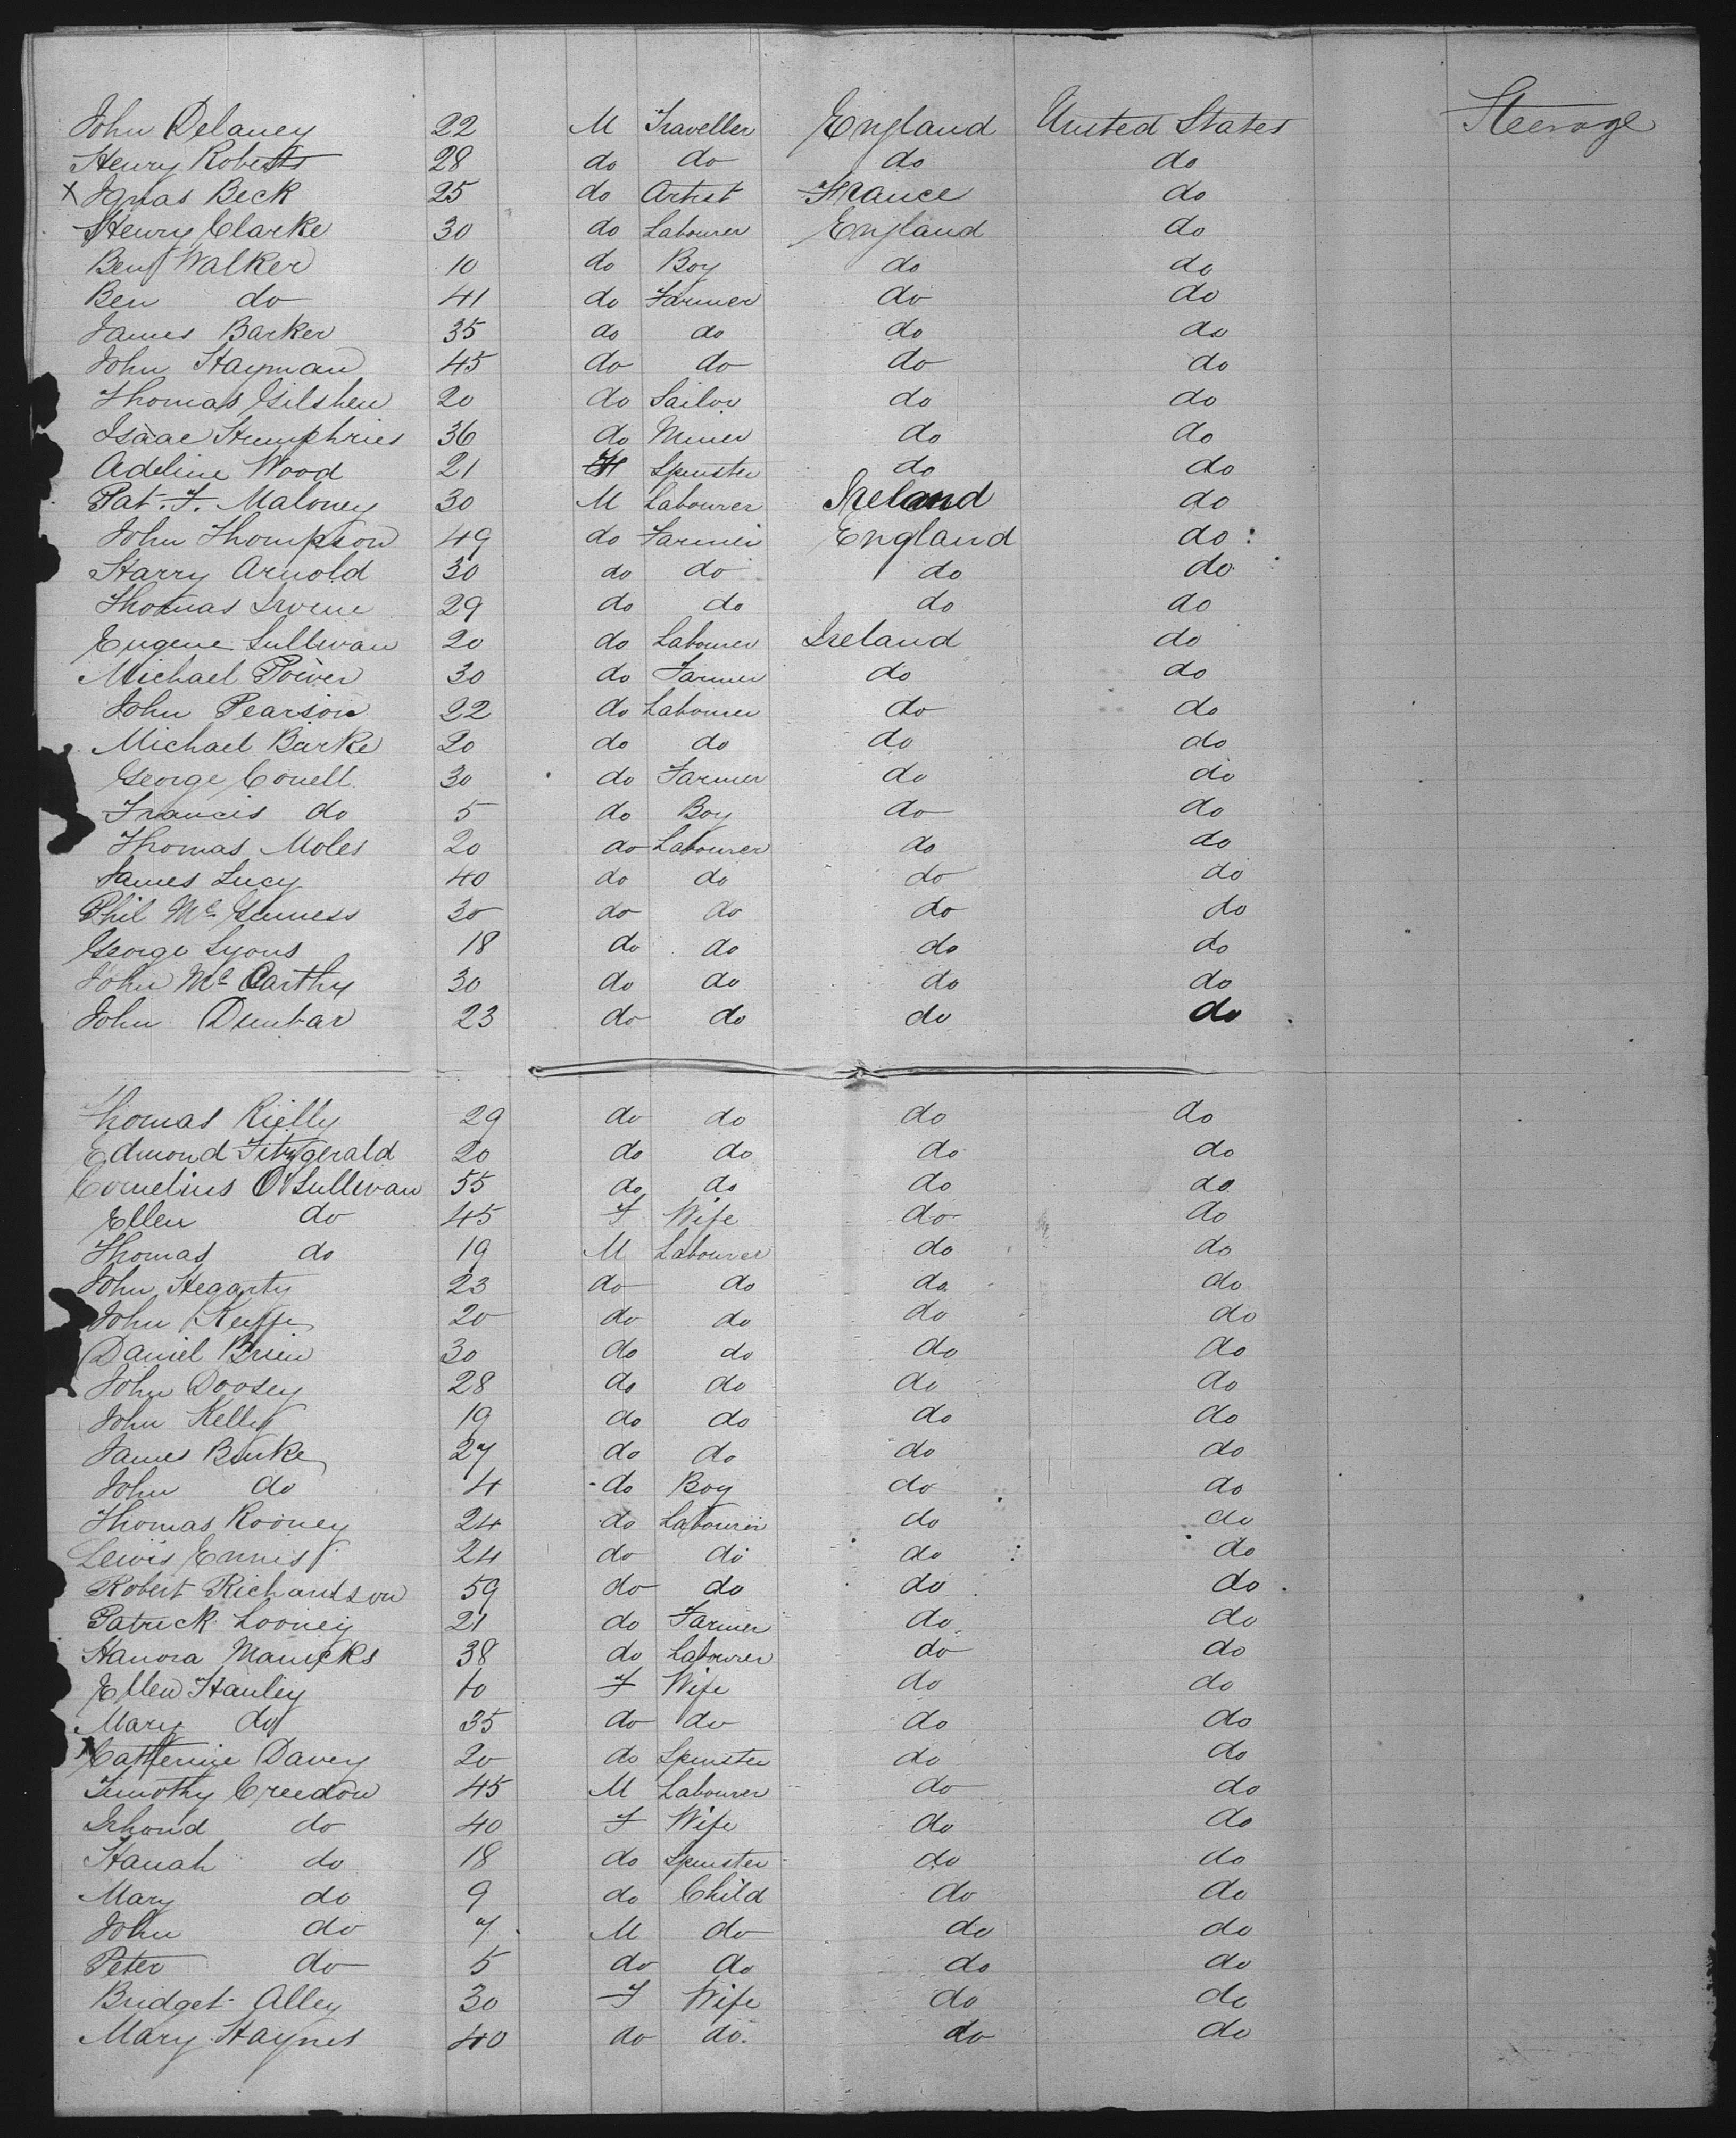 John Delaney 22 M Traveller England United States Steerage
Henry Roberts 28 do do do do
x Ignas Beck 25 do Artist France do
Henry Clarke 30 do Labourer England do
Benj Walker 10 do Boy do do
Ben do 41 do Farmer do do
James Barker 35 do do do do
John Hayman 45 do do do do
Thomas Gilshen 20 do Sailor do do
Isaac Humphries 36 do Miner do do
Adeline Wood 21 F Spinster do do
Pat. F. Maloney 30 M Labourer Ireland do
John Thompson 49 do Farmer England do
Harry Arnold 30 do do do do
Thomas Irvine 29 do do do do
Eugene Sullivan 20 do Labourer Ireland do
Michael Power 30 do Farmer do do
John Pearson 22 do Labourer do do
Michael Burke 20 do do do do
George Conell 30 do Farmer do do
Francis do 5 do Boy do do
Thomas Moles 20 do Labourer do do
James Lucy 40 do do do do
Phil Mc 30 do do do do
George Lyons 18 do do do do
John Mc Carthy 30 do do do do
John Dunbar 23 do do do do
Thomas Rielly 29 do do do do
Edmond Fitzgerald 20 do do do do
Cornelius O'Sullivan 55 do do do do
Ellen do 45 F Wife do do
Thomas do 19 M Labourer do do
John Hegarty 23 do do do do
John Keeffe 20 do do do do
Daniel Brien 30 do do do do
John Doosey 28 do do do do
John Kelly 19 do do do do
James Burke 27 do do do do
John do 4 do Boy do do
Thomas Rooney 24 do Labourer do do
Lewis Ennis 24 do do do do
Robert Richardson 59 do do do do
Patrick Looney 21 do Farmer do do
Hanora 38 do Labourer do do
Ellen Hanley 10 F Wife do do
Mary do 35 do do do do
Catherine Davey 20 do Spinster do do
Timothy Creedon 45 M Labourer do do
do 40 F Wife do do
Hanah do 18 do Spinster do do
Mary do 9 do Child do do
John do 7 M do do do
Peter do 5 do do do do
Bridget Alley 30 F Wife do do
Mary Haynes 40 do do. do do